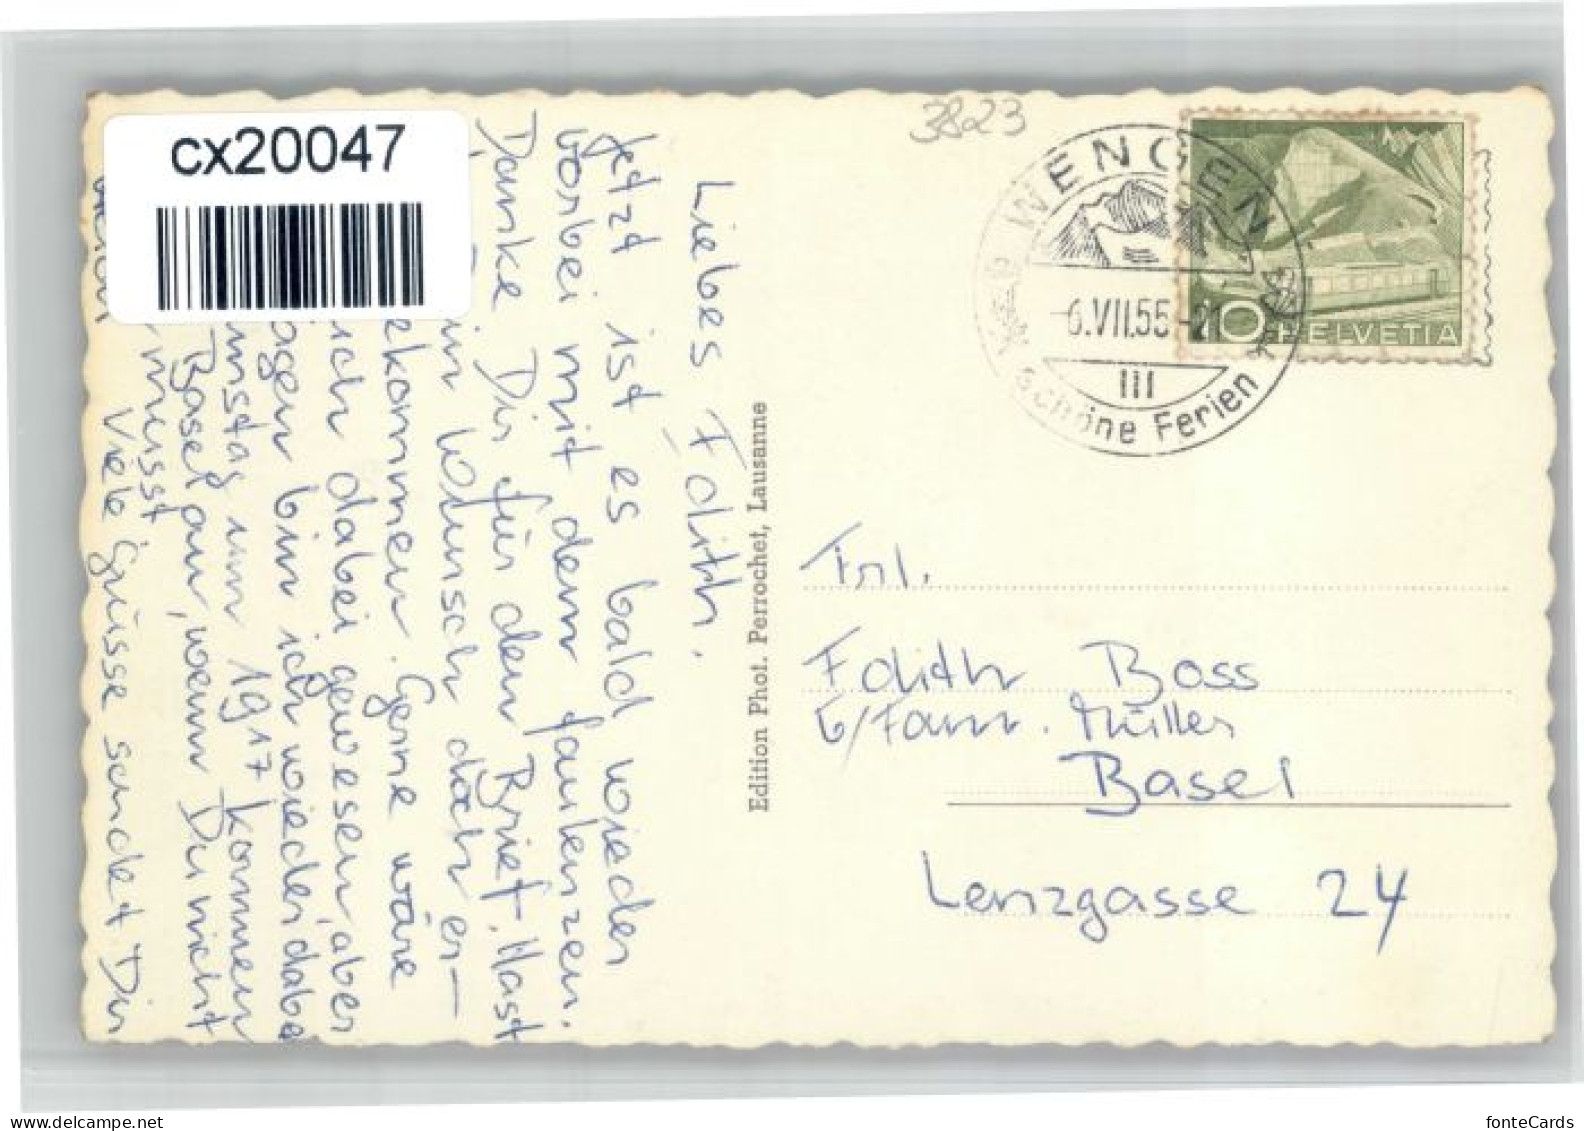 cx20047
3823
WENGEN
6.VII.55-21
III
schöne Ferien
10 HELVETIA
Liebes Edith.
Jetzt ist es bald wieder
vorbei mit dem faulenzen.
Danke Dir für den Brief. Hast
Dein Wunsch doch er-
bekommen. Gerne wäre
ich dabei gewesen, aber
sagen bin ich wieder dabei
Samstag um 1917 kommen
Basel an, wenn Du nicht
musst
Viele Grüsse sendet Dir
Edition Phot. Perrochet, Lausanne
Frl.
Edith Boss
b/Fam. Müller
Basel
Lenzgasse 24
fonteCards